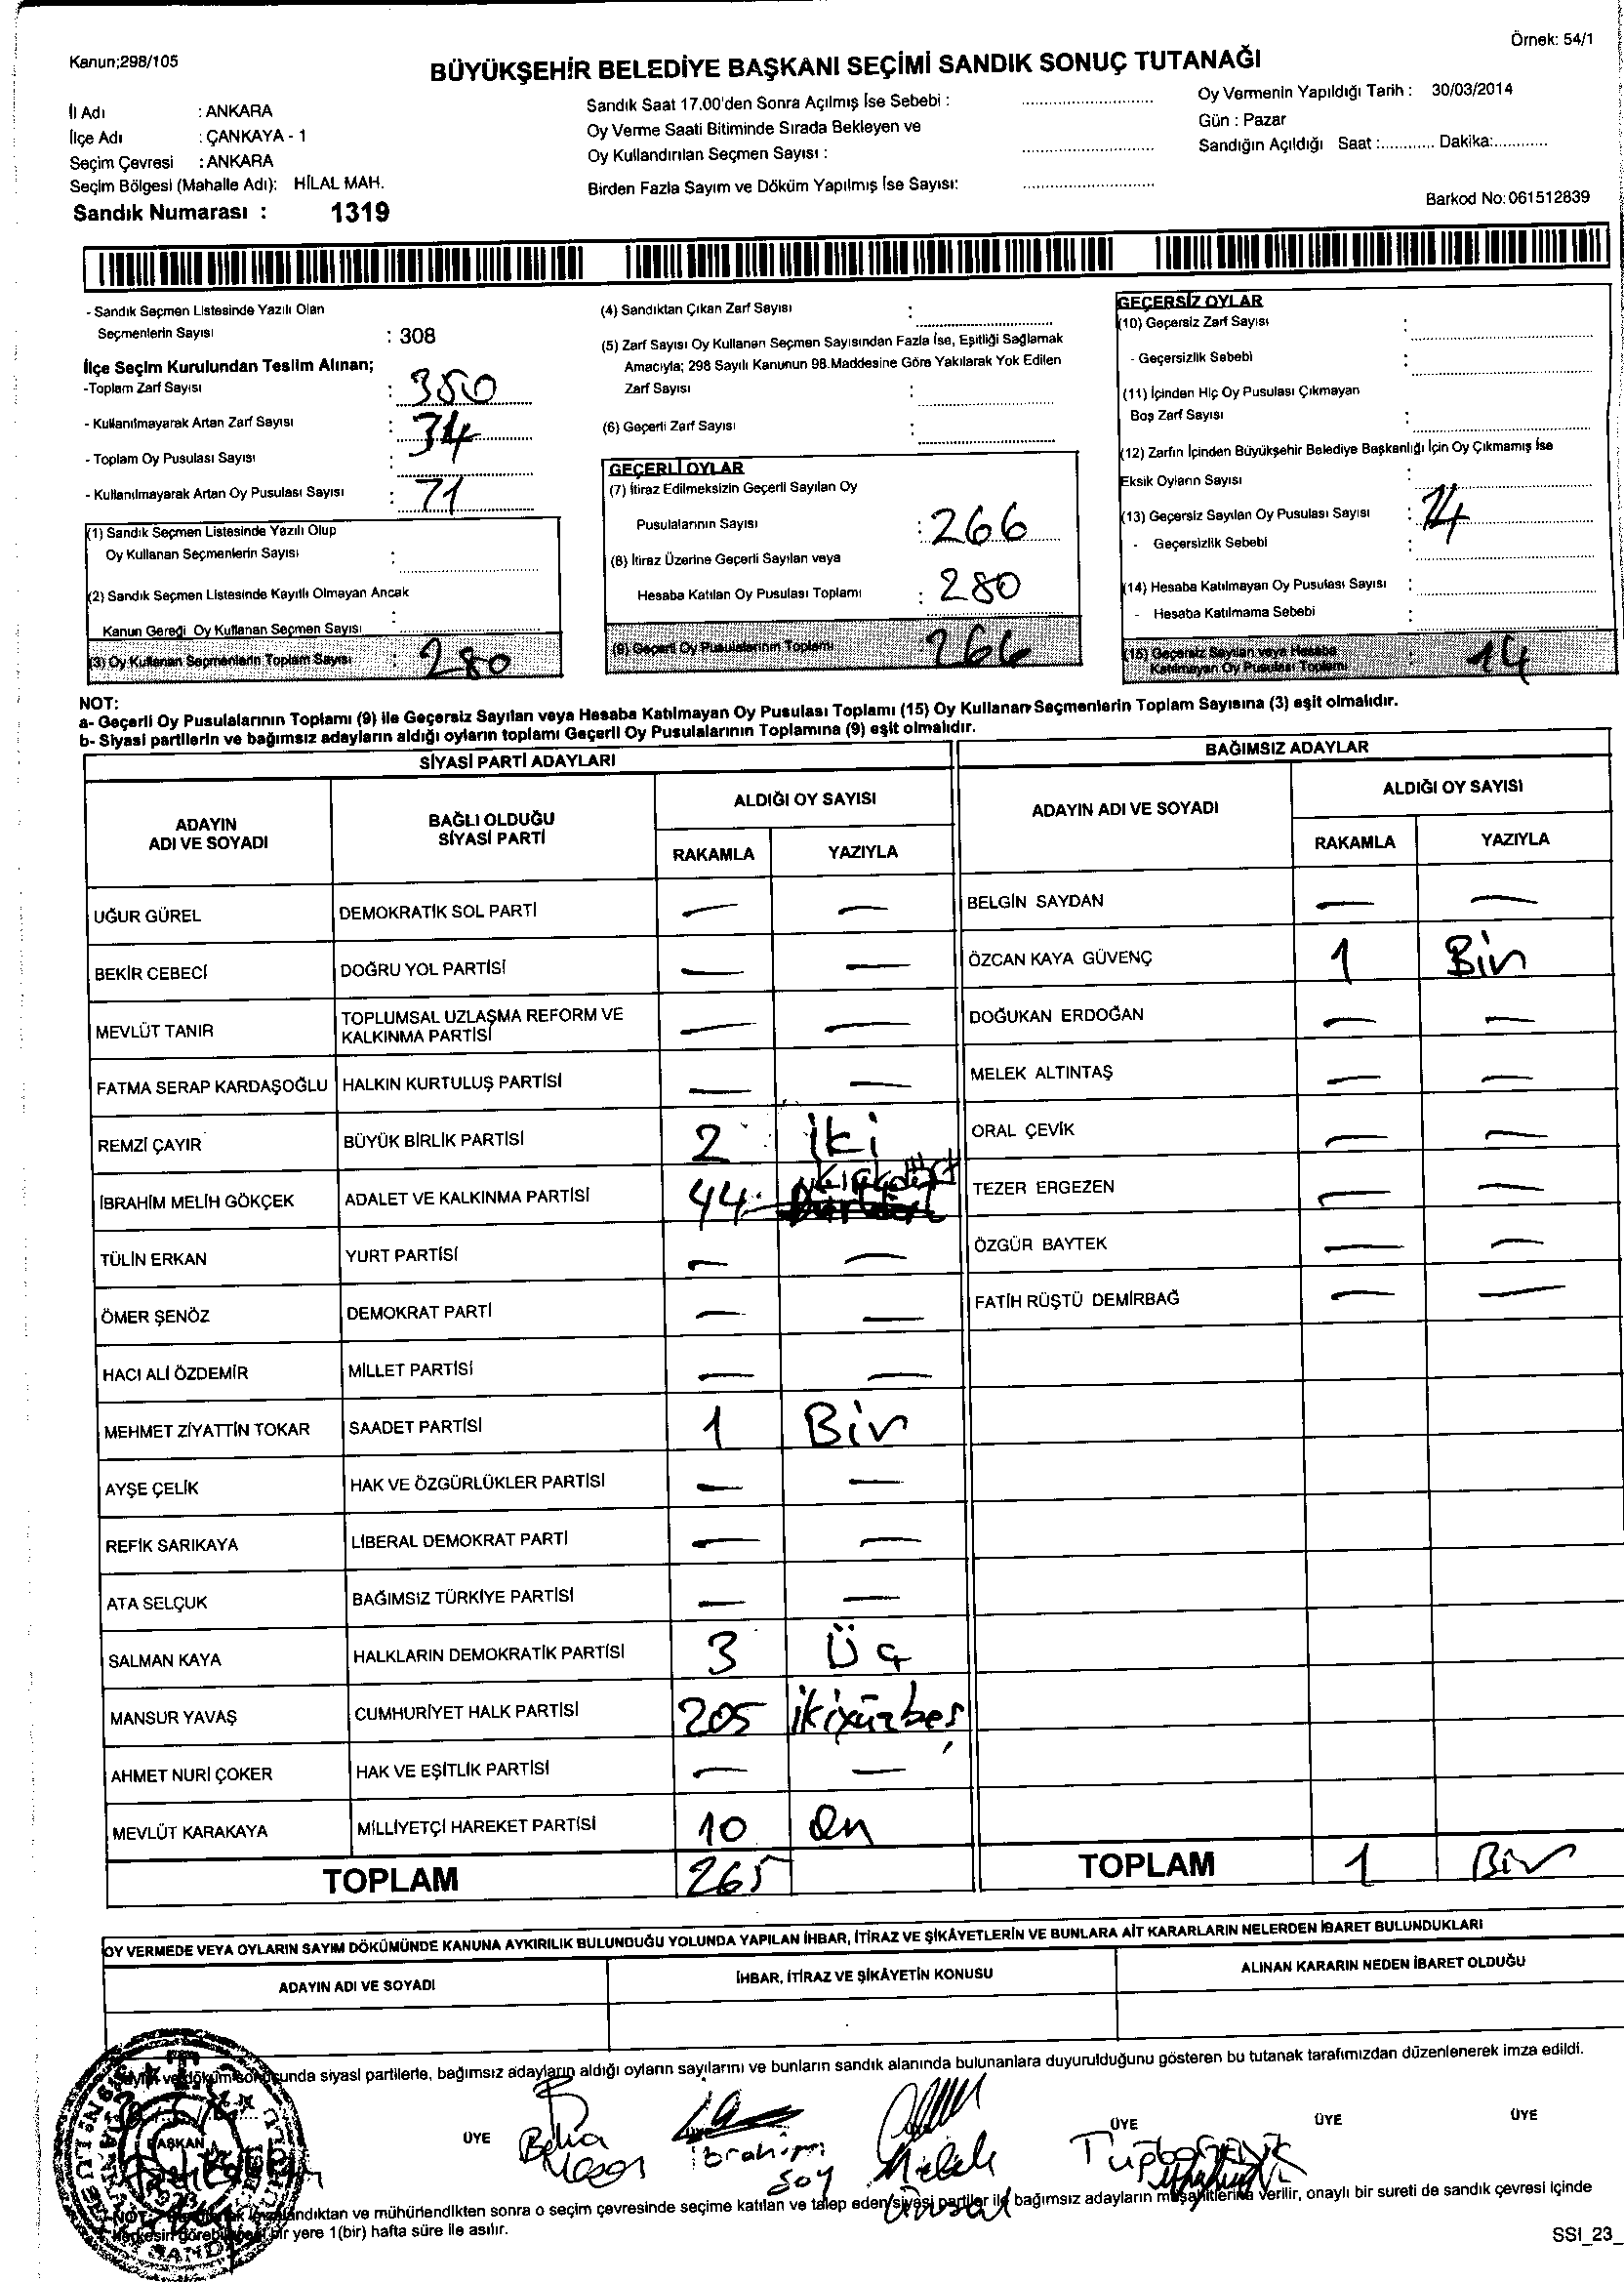 Örnek: 54/1
Kanun;298/105
BÜYÜKŞEHİR BELEDİYE BAŞKANI SEÇİMİ SANDIK SONUÇ TUTANAĞI
İl Adı : ANKARA
İlçe Adı : ÇANKAYA - 1
Seçim Çevresi : ANKARA
Seçim Bölgesi (Mahalle Adı): HİLAL MAH.
Sandık Numarası : 1319
Sandık Saat 17.00'den Sonra Açılmış İse Sebebi :
Oy Verme Saati Bitiminde Sırada Bekleyen ve
Oy Kullandırılan Seçmen Sayısı :
Birden Fazla Sayım ve Döküm Yapılmış İse Sayısı:
Oy Vermenin Yapıldığı Tarih : 30/03/2014
Gün : Pazar
Sandığın Açıldığı Saat :............ Dakika:............
Barkod No: 061512839
- Sandık Seçmen Listesinde Yazılı Olan
Seçmenlerin Sayısı : 308
İlçe Seçim Kurulundan Teslim Alınan;
-Toplam Zarf Sayısı : 350
- Kullanılmayarak Artan Zarf Sayısı : 34
- Toplam Oy Pusulası Sayısı :
- Kullanılmayarak Artan Oy Pusulası Sayısı : 71
(1) Sandık Seçmen Listesinde Yazılı Olup
Oy Kullanan Seçmenlerin Sayısı :
(2) Sandık Seçmen Listesinde Kayıtlı Olmayan Ancak
Kanun Gereği Oy Kullanan Seçmen Sayısı :
(3) Oy Kullanan Seçmenlerin Toplam Sayısı : 280
(4) Sandıktan Çıkan Zarf Sayısı :
(5) Zarf Sayısı Oy Kullanan Seçmen Sayısından Fazla İse, Eşitliği Sağlamak
Amacıyla; 298 Sayılı Kanunun 98.Maddesine Göre Yakılarak Yok Edilen
Zarf Sayısı :
(6) Geçerli Zarf Sayısı :
GEÇERLİ OYLAR
(7) İtiraz Edilmeksizin Geçerli Sayılan Oy
Pusulalarının Sayısı : 266
(8) İtiraz Üzerine Geçerli Sayılan veya
Hesaba Katılan Oy Pusulası Toplamı : 280
(9) Geçerli Oy Pusulalarının Toplamı 266
GEÇERSİZ OYLAR
(10) Geçersiz Zarf Sayısı :
- Geçersizlik Sebebi :
(11) İçinden Hiç Oy Pusulası Çıkmayan
Boş Zarf Sayısı :
(12) Zarfın İçinden Büyükşehir Belediye Başkanlığı İçin Oy Çıkmamış İse
Eksik Oyların Sayısı :
(13) Geçersiz Sayılan Oy Pusulası Sayısı : 14
- Geçersizlik Sebebi :
(14) Hesaba Katılmayan Oy Pusulası Sayısı :
- Hesaba Katılmama Sebebi :
(15) Geçersiz Sayılan veya Hesaba
Katılmayan Oy Pusulası Toplamı : 14
NOT:
a- Geçerli Oy Pusulalarının Toplamı (9) ile Geçersiz Sayılan veya Hesaba Katılmayan Oy Pusulası Toplamı (15) Oy Kullanan Seçmenlerin Toplam Sayısına (3) eşit olmalıdır.
b- Siyasi partilerin ve bağımsız adayların aldığı oyların toplamı Geçerli Oy Pusulalarının Toplamına (9) eşit olmalıdır.
SİYASİ PARTİ ADAYLARI
ADAYIN
ADI VE SOYADI
BAĞLI OLDUĞU
SİYASİ PARTİ
ALDIĞI OY SAYISI
RAKAMLA YAZIYLA
UĞUR GÜREL DEMOKRATİK SOL PARTİ — —
BEKİR CEBECİ DOĞRU YOL PARTİSİ — —
MEVLÜT TANIR TOPLUMSAL UZLAŞMA REFORM VE
KALKINMA PARTİSİ — —
FATMA SERAP KARDAŞOĞLU HALKIN KURTULUŞ PARTİSİ — —
REMZİ ÇAYIR BÜYÜK BİRLİK PARTİSİ 2 iki
İBRAHİM MELİH GÖKÇEK ADALET VE KALKINMA PARTİSİ 44 kırkdört
TÜLİN ERKAN YURT PARTİSİ — —
ÖMER ŞENÖZ DEMOKRAT PARTİ — —
HACI ALİ ÖZDEMİR MİLLET PARTİSİ — —
MEHMET ZİYATTİN TOKAR SAADET PARTİSİ 1 Bir
AYŞE ÇELİK HAK VE ÖZGÜRLÜKLER PARTİSİ — —
REFİK SARIKAYA LİBERAL DEMOKRAT PARTİ — —
ATA SELÇUK BAĞIMSIZ TÜRKİYE PARTİSİ — —
SALMAN KAYA HALKLARIN DEMOKRATİK PARTİSİ 3 Üç
MANSUR YAVAŞ CUMHURİYET HALK PARTİSİ 205 ikiyüzbeş
AHMET NURİ ÇOKER HAK VE EŞİTLİK PARTİSİ — —
MEVLÜT KARAKAYA MİLLİYETÇİ HAREKET PARTİSİ 10 On
TOPLAM 265
BAĞIMSIZ ADAYLAR
ADAYIN ADI VE SOYADI
ALDIĞI OY SAYISI
RAKAMLA YAZIYLA
BELGİN SAYDAN — —
ÖZCAN KAYA GÜVENÇ 1 Bir
DOĞUKAN ERDOĞAN — —
MELEK ALTINTAŞ — —
ORAL ÇEVİK — —
TEZER ERGEZEN — —
ÖZGÜR BAYTEK — —
FATİH RÜŞTÜ DEMİRBAĞ — —
TOPLAM 1 Bir
OY VERMEDE VEYA OYLARIN SAYIM DÖKÜMÜNDE KANUNA AYKIRILIK BULUNDUĞU YOLUNDA YAPILAN İHBAR, İTİRAZ VE ŞİKÂYETLERİN VE BUNLARA AİT KARARLARIN NELERDEN İBARET BULUNDUKLARI
ADAYIN ADI VE SOYADI İHBAR, İTİRAZ VE ŞİKÂYETİN KONUSU ALINAN KARARIN NEDEN İBARET OLDUĞU
Sayım ve döküm sonucunda siyasi partilerle, bağımsız adayların aldığı oyların sayılarını ve bunların sandık alanında bulunanlara duyurulduğunu gösteren bu tutanak tarafımızdan düzenlenerek imza edildi.
BAŞKAN ÜYE ÜYE ÜYE ÜYE
İbrahim
Soy
Melek
Ünsal
ndıktan ve mühürlendikten sonra o seçim çevresinde seçime katılan ve talep eden siyasi partiler ile bağımsız adayların müşahitlerine verilir, onaylı bir sureti de sandık çevresi içinde
herkesin görebileceği bir yere 1(bir) hafta süre ile asılır.
SSI_23_